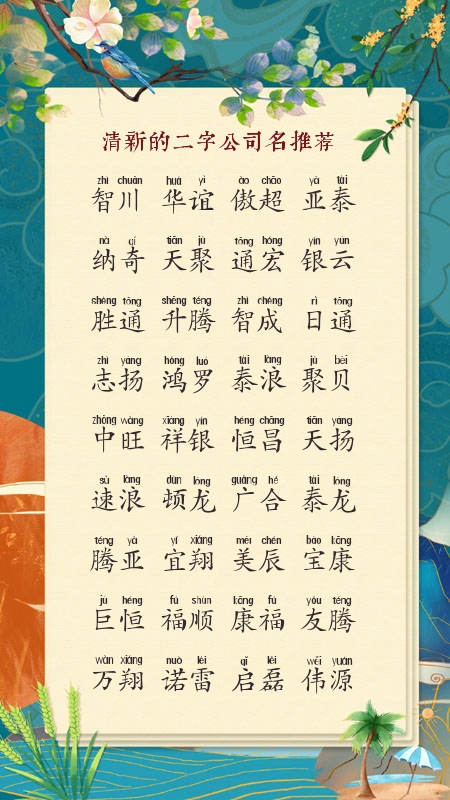 清新的二字公司名推荐
zhì chuān huá yì ào chāo yà tài
智川 华谊 傲超 亚泰
nà qí tiān jù tōng hóng yín yún
纳奇 天聚 通宏 银云
shèng tōng shēng téng zhì chéng rì tōng
胜通 升腾 智成 日通
zhì yáng hóng luó tài làng jù bèi
志扬 鸿罗 泰浪 聚贝
zhōng wàng xiáng yín héng chāng tiān yáng
中旺 祥银 恒昌 天扬
sù làng dùn lóng guǎng hé tài lóng
速浪 顿龙 广合 泰龙
téng yà yí xiáng měi chén bǎo kāng
腾亚 宜翔 美辰 宝康
jù héng fú shùn kāng fú yǒu téng
巨恒 福顺 康福 友腾
wàn xiáng nuò léi qǐ lěi wěi yuán
万翔 诺雷 启磊 伟源